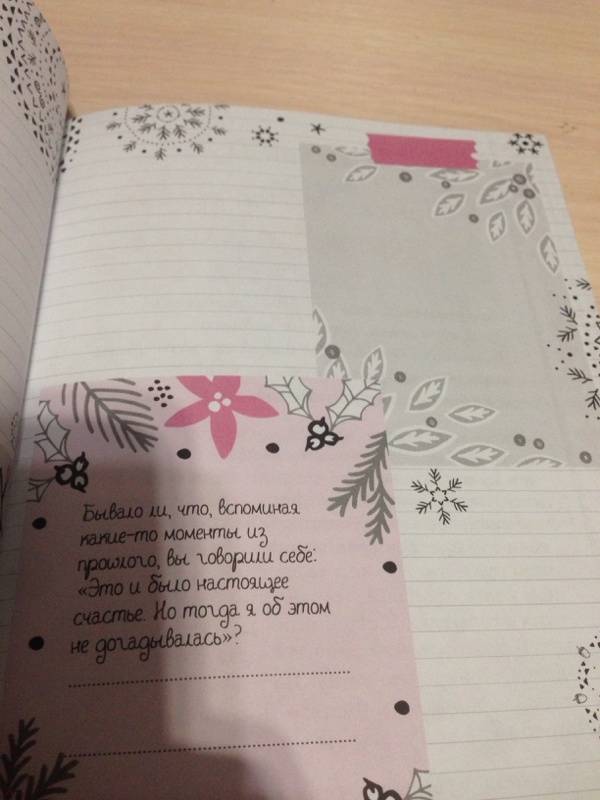 Бывало ли, что, вспоминая
какие-то моменты из
прошлого, вы говорили себе:
«Это и было настоящее
счастье. Но тогда я об этом
не догадывалась»?